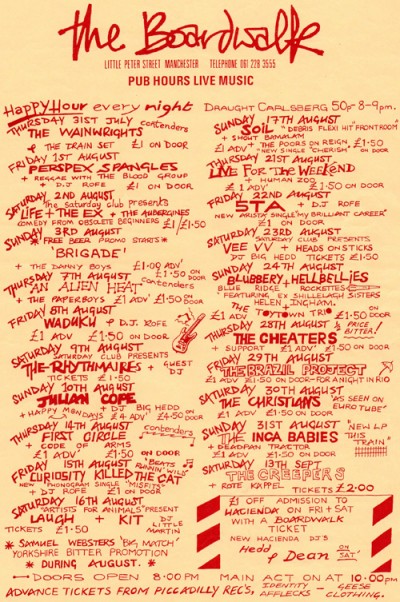 the Boardwalk
LITTLE PETER STREET MANCHESTER TELEPHONE 061 228 3555
PUB HOURS LIVE MUSIC
HAPPY HOUR every night
THURSDAY 31ST JULY contenders
THE WAINWRIGHTS
& THE TRAIN SET £1 ON DOOR
FRIDAY 1ST AUGUST
PERSPEX SPANGLES
+ REGGAE WITH THE BLOOD GROUP
+ DJ ROFE £1 ON DOOR
SATURDAY 2ND AUGUST
The saturday club presents
LIFE + THE EX + THE AUBERGINES
COMEDY FROM OBSOLETE BEGINNERS £1/£1·50
SUNDAY 3RD AUGUST
* FREE BEER PROMO STARTS *
'BRIGADE'
+ THE DANNY BOYS £1·00 ADV'
£1·50 ON DOOR
THURSDAY 7TH AUGUST
'AN ALIEN HEAT' contenders
+ THE PAPERBOYS £1 ADV' £1·50 ON DOOR
FRIDAY 8TH AUGUST
WADAKU + D.J. ROFE
£1 ADV £1·50 ON DOOR
SATURDAY 9TH AUGUST
SATURDAY CLUB PRESENTS
THE RHYTHMAIRES + GUEST DJ
TICKETS £1·50
SUNDAY 10TH AUGUST
JULIAN COPE
+ HAPPY MONDAYS + DJ BIG HEDD ON DOOR
£4 ADV £4·50
THURSDAY 14TH AUGUST
FIRST CIRCLE contenders
+ CODE OF ARMS
£1 ADV' £1·50 ON DOOR
FRIDAY 15TH AUGUST "BEATS RUNNIN' WILD"
CURIOSITY KILLED THE CAT
NEW 'PHONOGRAM SINGLE "MISFIT"
+ DJ ROFE £1 ON DOOR
SATURDAY 16TH AUGUST
"ARTISTS FOR ANIMALS" PRESENT
LAUGH + KIT DJ LITTLE MARTIN
TICKETS £1·50
* SAMUEL WEBSTERS 'BIG MATCH'
YORKSHIRE BITTER PROMOTION
* DURING AUGUST. *
DRAUGHT CARLSBERG 50P 8-9pm.
SUNDAY 17TH AUGUST
SOIL "DEBRIS FLEXI HIT" FRONT ROOM
+ SHOUT BAMALAM
+ THE POORS ON REIGN £1·50
£1 ADV' "NEW SINGLE "CHERISH" ON DOOR
THURSDAY 21ST AUGUST
LIVE FOR THE WEEKEND
+ HUMAN ZOO
£1 ADV' £1·50 ON DOOR
FRIDAY 22ND AUGUST
5TA + DJ ROFE
NEW ARISTA SINGLE "MY BRILLIANT CAREER"
£1 ON DOOR
SATURDAY 23RD AUGUST
SATURDAY CLUB' PRESENTS
VEE VV + HEADS ON STICKS
DJ BIG HEDD TICKETS £1·50
SUNDAY 24TH AUGUST
BLUBBERY HELLBELLIES
BLUE RIDGE ROCKETTES
FEATURING EX SHILLELAGH SISTERS
HELEN INGHAM.
THE TOYTOWN TRIO £1·50 ON DOOR
THURSDAY 28TH AUGUST ½ PRICE BITTER!
THE CHEATERS
+ SUPPORT £1 ADV' £1·50 ON DOOR
FRIDAY 29TH AUGUST
THE BRAZIL PROJECT
£1 ADV £1·50 ON DOOR - FOR A NIGHT IN RIO
SATURDAY 30TH AUGUST
THE CHRISTIANS "AS SEEN ON EUROTUBE"
£1 ADV £1·50 ON DOOR
SUNDAY 31ST AUGUST "NEW LP THIS TRAIN"
THE INCA BABIES
+ DEADPAN TRACTOR
£1 ADV' £1·50 ON DOOR
SATURDAY 13TH SEPT
THE CREEPERS
+ ROTE KAPPEL TICKETS £2·00
£1 OFF ADMISSION TO
HACIENDA ON FRI + SAT
WITH A BOARDWALK
TICKET
NEW HACIENDA DJ'S
Hedd + Dean ON SAT'
DOORS OPEN 8:00 PM MAIN ACT ON AT 10:00 PM
ADVANCE TICKETS FROM PICCADILLY REC'S, IDENTITY - GEESE
AFFLECKS - CLOTHING.